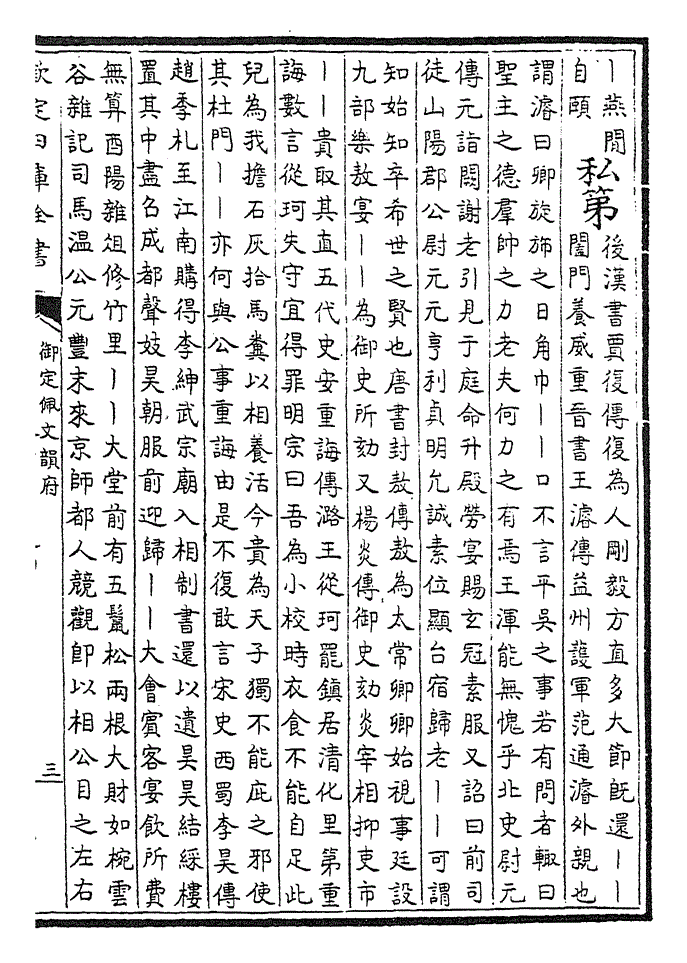 丨燕閒
自頤
私第
後漢書賈復傳復為人剛毅方直多大節既還丨丨
闔門養威重晉書王濬傳益州護軍范通濬外親也
謂濬曰卿旋斾之日角巾丨丨口不言平吳之事若有問者輒曰
聖主之德羣帥之力老夫何力之有焉王渾能無愧乎北史尉元
傳元詣闕謝老引見于庭命升殿勞宴賜玄冠素服又詔曰前司
徒山陽郡公尉元元亨利貞明允誠素位顯台宿歸老丨丨可謂
知始知卒希世之賢也唐書封敖傳敖為太常卿卿始視事廷設
九部樂敖宴丨丨為御史所劾又楊炎傳御史劾炎宰相抑吏市
丨丨貴取其直五代史安重誨傳潞王從珂罷鎮居清化里第重
誨數言從珂失守宜得罪明宗曰吾為小校時衣食不能自足此
兒為我擔石灰拾馬糞以相養活今貴為天子獨不能庇之邪使
其杜門丨丨亦何與公事重誨由是不復敢言宋史西蜀李昊傳
趙季札至江南購得李紳武宗廟入相制書還以遺昊昊結綵樓
置其中盡召成都聲妓昊朝服前迎歸丨丨大會賓客宴飲所費
無算酉陽雜俎修竹里丨丨大堂前有五鬛松兩根大財如椀雲
谷雜記司馬溫公元豐末來京師都人競觀卽以相公目之左右
欽定四庫全書
御定佩文韻府
三